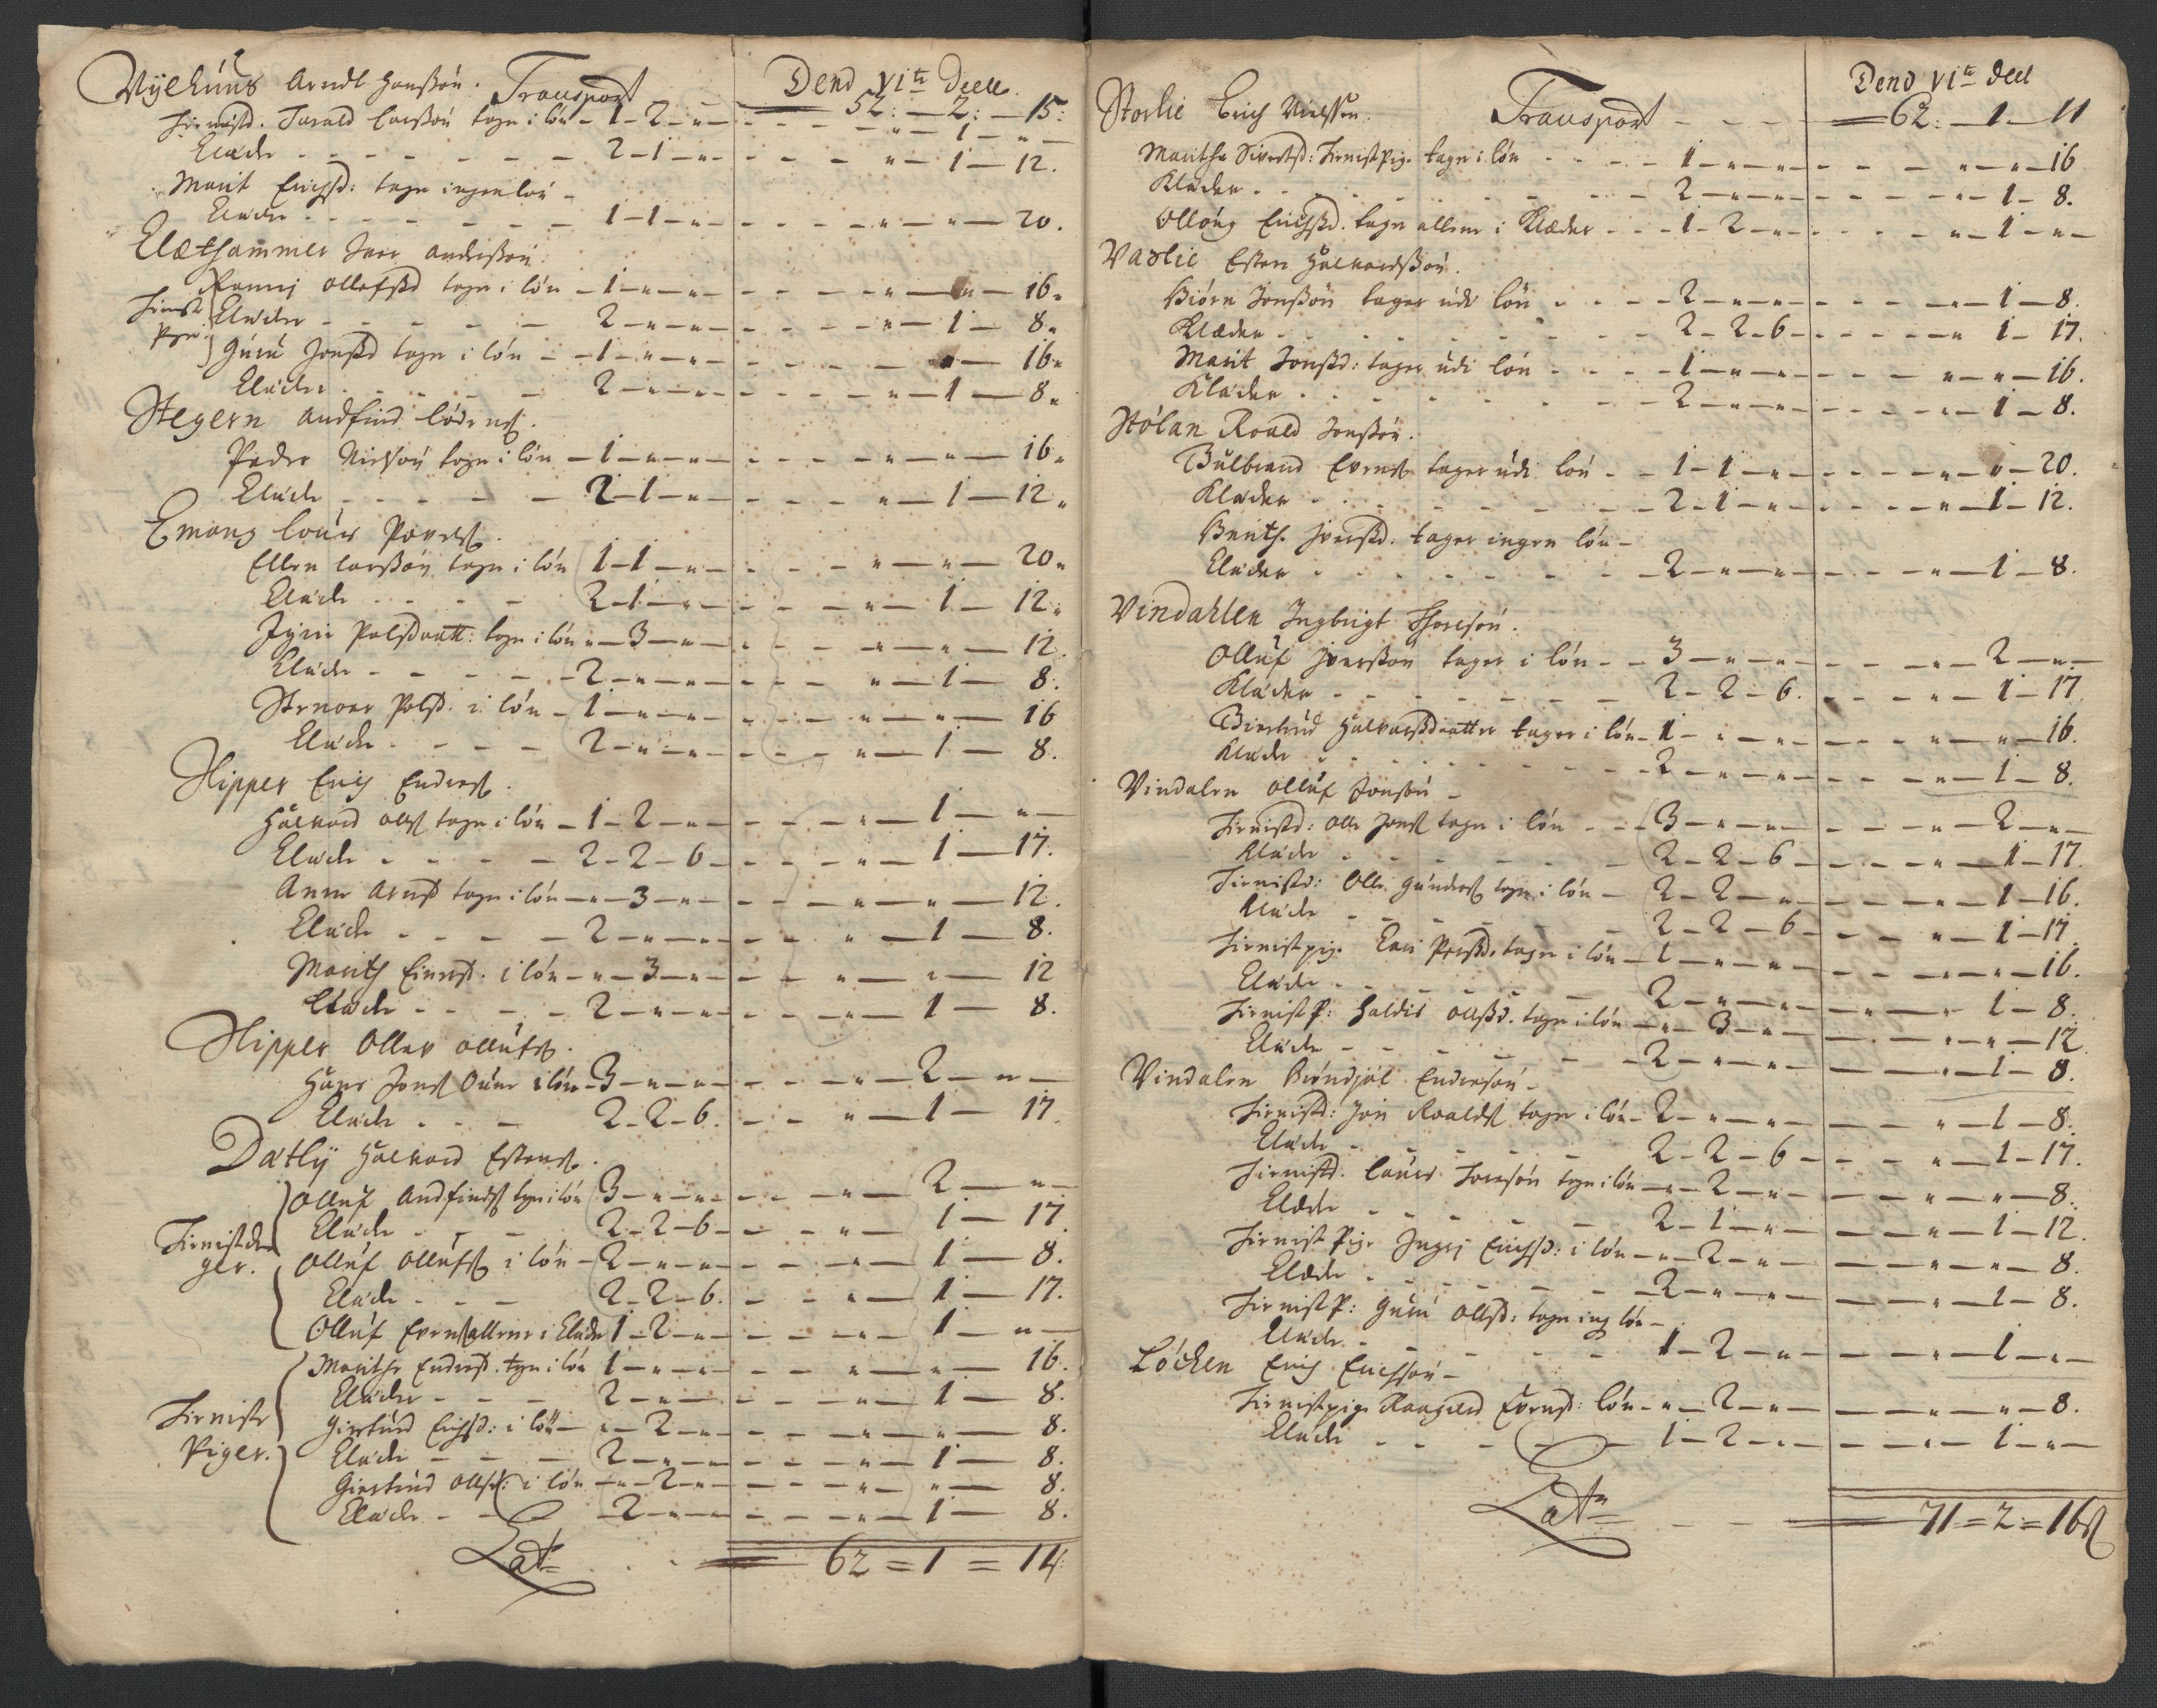 Vyehuus Arndt Hanssøn. Transport Dend VIte Deell
52: — 2: — 15:
Tienistd. Tarald Larssøn tager i løn — 1 — 2 — " — " — 1 — "
Klæde 2 — 1 — " — " — 1 — 12.
Marit Erichsd: tager ingen løn —
Klæde 1 — 1 — " — " — " — 20.
Klæthammer Iver Anderssøn.
Tieniste Piger
Ronnj Ollefsd tager i løn — 1 — " — " — " — " — 16.
Klæder 2 — " — " — " — 1 — 8.
Guru Jonsd tager i løn — 1 — " — " — " — 16.
Klæder 2 — " — " — " — 1 — 8.
Stegern Andfind
Peder Nielsøn tager i løn — 1 — " — " — " — " — 16.
Klæde 2 — 1 — " — " — 1 — 12.
Emong Louris Povels.
Ellen Larssøn tager i løn 1 — 1 — " — " — " — 20.
Klæde 2 — 1 — " — " — 1 — 12.
Polsdaatt: tager i løn " — 3 — " — " — " — 12.
Klæde 2 — " — " — " — 1 — 8.
Polsd. i løn — 1 — " — " — " — " — 16
Klæde 2 — " — " — " — 1 — 8.
Slipper Erich Enders.
Halvord Olls tager i løn — 1 — 2 — " — " — 1 — "
Klæde 2 — 2 — 6 — " — 1 — 17.
Anne Arnsd tager i løn — " — 3 — " — " — " — 12.
Klæde 2 — " — " — " — 1 — 8.
Marith Einersd. i løn — " — 3 — " — " — " — 12
Klæde 2 — " — " — " — 1 — 8.
Slipper Oller Ollufs.
Hans Jons i løn — 3 — " — " — " — 2 — "
Klæde 2 — 2 — 6. — " — 1 — 17.
Dætly Halvord Estens.
Tienistdrenger.
Olluf Andfinds tager i løn 3 — " — " — " — 2 — "
Klæde 2 — 2 — 6 — " — 1 — 17.
Olluf Ollufs i løn — 2 — " — " — " — 1 — 8.
Klæde 2 — 2 — 6. — " — 1 — 17.
Olluf Evens allene i Klæde 1 — 2 — " — " — 1 — "
Tieniste Piger.
Marithe Endersd. tager i løn 1 — " — " — " — " — 16.
Klæder 2 — " — " — " — 1 — 8.
Giertrud Erichsd: i løn — " — 2 — " — " — " — 8.
Klæde 2 — " — " — " — 1 — 8.
Giertrud Ollsd: i løn — " — 2 — " — " — " — 8.
Klæde 2 — " — " — " — 1 — 8.
Lat. 62 = 1 = 11:
Storlie Erich Nielssen. Transport Dend VIte deel
62: — 1 — 11
Marithe Sivertsd: Tienist Pige tager i løn 1 — " — " — " — " — 16
Klæder 2 — " — " — " — 1 — 8.
Ollóug Erichsd. tager allene i Klæder 1 — 2 — " — " — 1 — "
Vaslie Esten Halvordssøn.
Biørn Jonssøn tager udi løn 2 — " — " — " — 1 — 8.
Klæder 2 — 2 — 6 — " — 1 — 17.
Marit Jonsd: tager udi løn 1 — " — " — " — " — 16.
Klæder 2 — " — " — " — 1 — 8.
Stølan Roald Jonssøn.
Gulbrand Evens tager udi løn 1 — 1 — " — " — " — 20.
Klæder 2 — 1 — " — " — 1 — 12.
Berith Iversd. tager ingen løn —
Klæder 2 — " — " — " — 1 — 8.
Vindahlen Ingbrigt Thoresøn.
Olluf Iverssøn tager i løn 3 — " — " — " — 2 — "
Klæder 2 — 2 — 6. — " — 1 — 17
Giertrud Halvorsdaatter tager i løn 1 — " — " — " — " — 16.
Klæde 2 — " — " — " — 1 — 8.
Vindalen Olluf Jonsøn —
Tienistd: Olle Jons tager i løn 3 — " — " — " — 2 — "
Klæde 2 — 2 — 6 — " — 1 — 17.
Tienistd: Olle Gunders tager i løn — 2 — 2 — " — " — 1 — 16.
Klæde 2 — 2 — 6 — " — 1 — 17
Tienistpige Kari Persd. tager i løn — 1 — " — " — " — " — 16.
Klæde 2 — " — " — " — 1 — 8.
Tienist P: Haldis Ollsd. tager i løn — " — 3 — " — " — " — 12
Klæde 2 — " — " — " — 1 — 8.
Vindalen Endersøn —
Tienistd: Jon Roalds tager i løn — 2 — " — " — " — 1 — 8.
Klæde 2 — 2 — 6 — " — 1 — 17.
Tienistd. Louris Toresøn tager i løn — " — 2 — " — " — " — 8.
Klæde 2 — 1 — " — " — 1 — 12.
Tienist Pige Ingrj Erichsd: i løn — " — 2 — " — " — " — 8.
Klæde 2 — " — " — " — 1 — 8.
Tienist P: Guru Ollsd: tager ing løn —
Klæde 1 — 2 — " — " — 1 — "
Løcken Erich Erichssøn —
Tienistpige Raagnild Evensd: løn — " — 2 — " — " — " — 8.
Klæde 1 — 2 — " — " — 1 — "
Lat. 71 = 2 = 16 ß